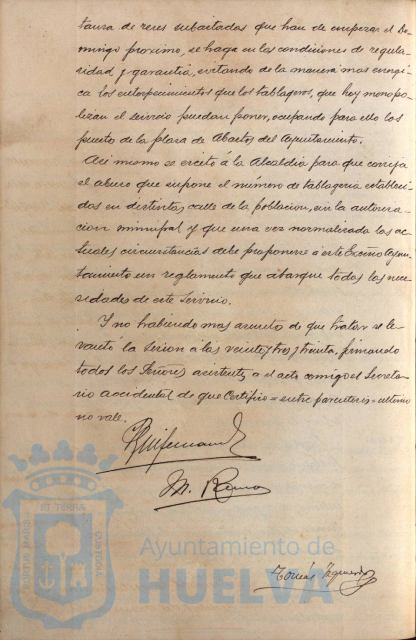 tanza de reses subastadas que han de empezar el Do-
mingo proximo, se haga en las condiciones de regula-
ridad y garantia, evitando de la manera mas energi-
ca los entorpecimientos que los tablageros, que hoy monopo-
lizan el servicio puedan poner, ocupando para ello los
puestos de la plaza de Abastos del Ayuntamiento.
Asi mismo se excitó a la Alcaldia para que corrija
el abuso que supone el número de tablageria estableci-
das en distintas calles de la poblacion, sin la autoriza-
cion municipal y que una vez normalizadas las ac-
tuales circunstancias debe proponerse á este Excmo Ayun-
tamiento un reglamento que abarque todas las nece-
sidades de este Servicio.
Y no habiendo mas asunto de que tratar se le-
vantó la Sesion a las veinte y tres y treinta, firmando
todos los Señores asistentes a el acto conmigo el Secreta-
rio accidental de que Certifico = entre parentesis = ultimo
no vale.
Tomás Izquierdo
PORTUS MARIS
ET TERRÆ
CUSTODIA
Ayuntamiento de
HUELVA